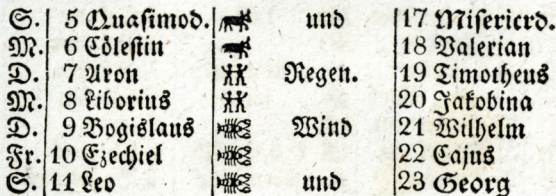 S. 5 Quasimod. und 17 Misericrd.
M. 6 Cölestin 18 Valerian
D. 7 Aron Regen. 19 Timotheus
M. 8 Liborius 20 Jakobina
D. 9 Bogislaus Wind 21 Wilhelm
Fr. 10 Ezechiel 22 Cajus
S. 11 Leo und 23 Georg